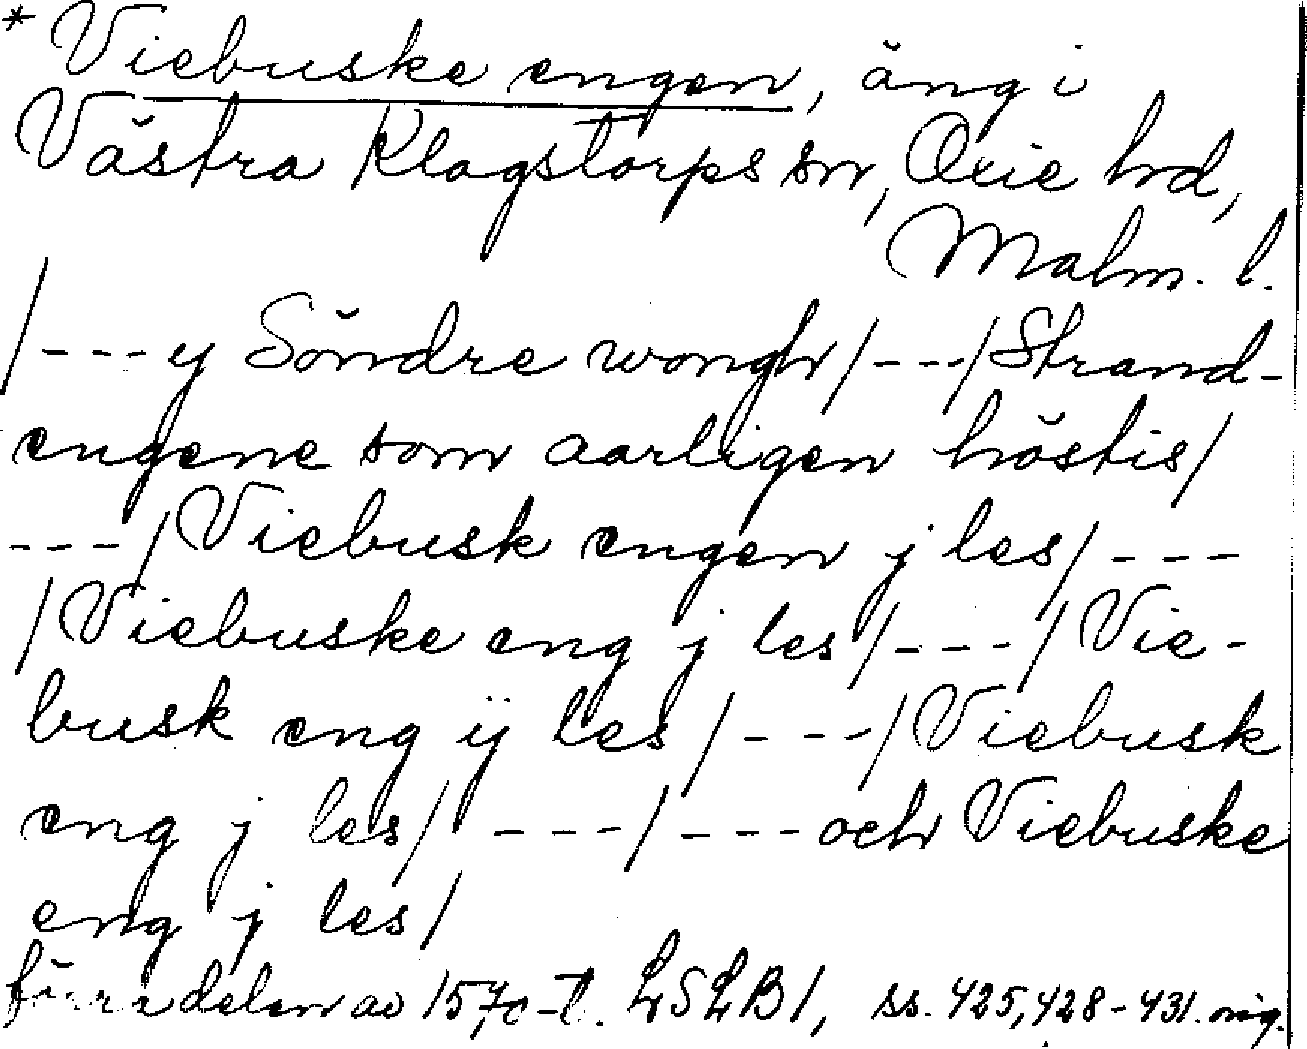 * Viebuske engen, äng i
Västra Klagstorps sn, Oxie hd,
Malm. l.
/---y Söndre wongh/---/Strand-
engene som aarligen höstis/
---/Viebusk engen j les/---
/Viebuske eng j les/---/Vie-
busk eng ij les/---/Viebusk
eng j les/ ---/---och Viebuske
eng j les/
förra delen av 1570-t. LSLB1, ss. 425, 428-431. orig.